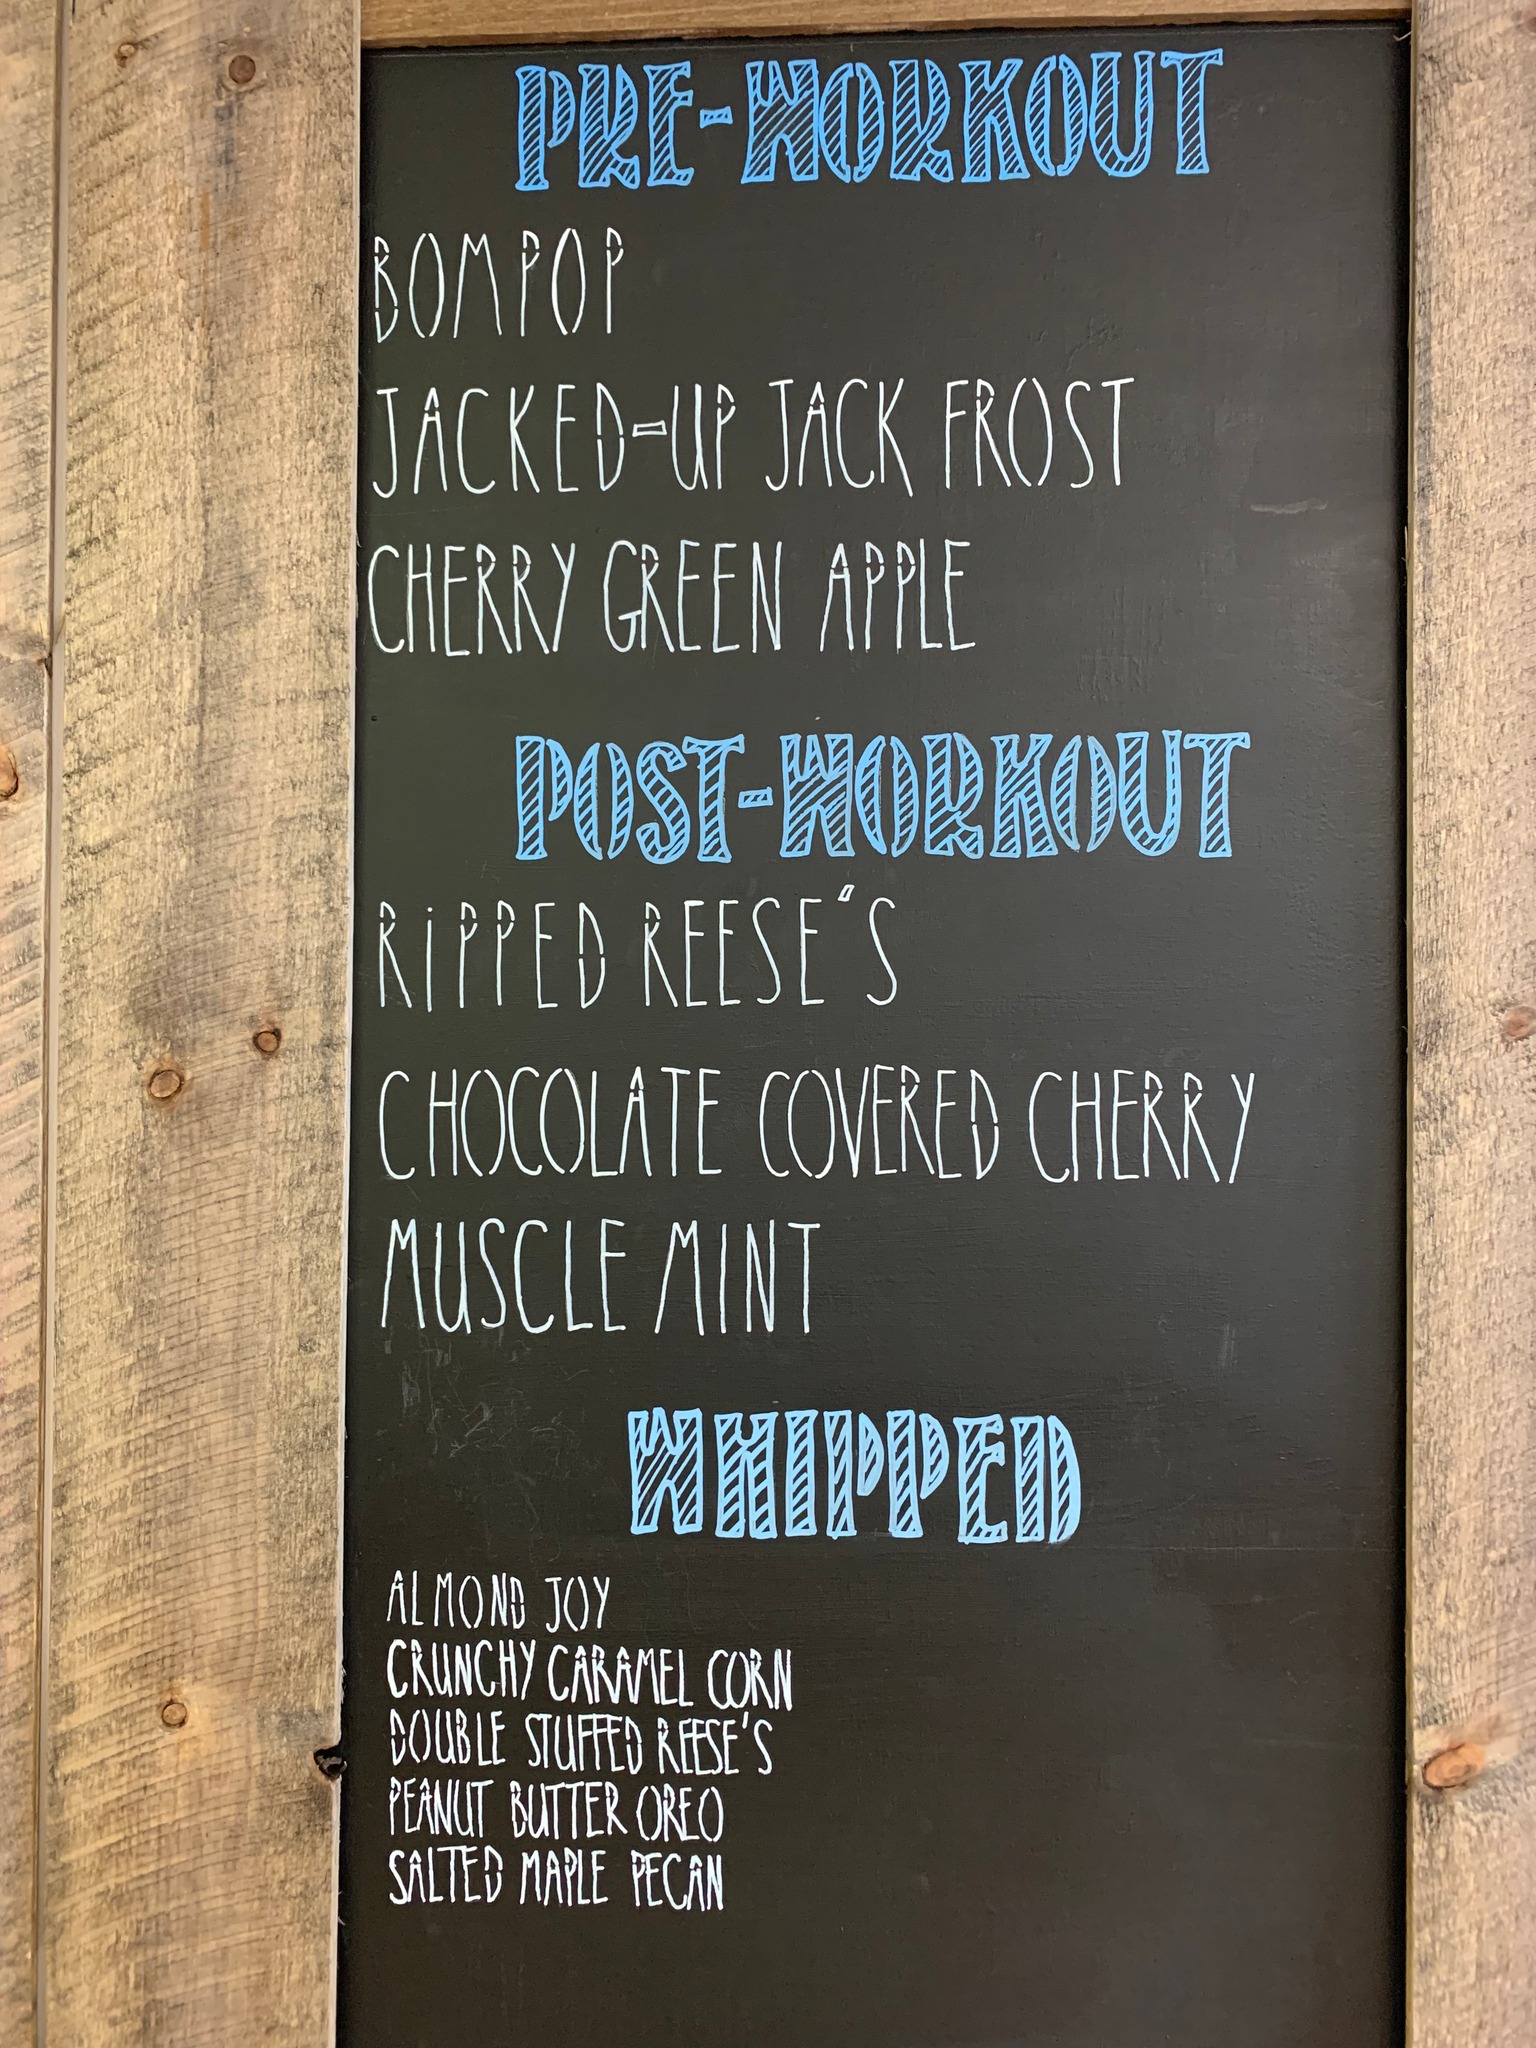 PRE-WORKOUT
BOMPOP
JACKED-UP JACK FROST
CHERRY GREEN APPLE
POST-WORKOUT
RiPPED REESE'S
CHOCOLATE COVERED CHERRY
MUSCLE MINT
WHIPPED
ALMOND JOY
CRUNCHY CARAMEL CORN
DOUBLE STUFFED REESE'S
PEANUT BUTTER OREO
SALTED MAPLE PECAN